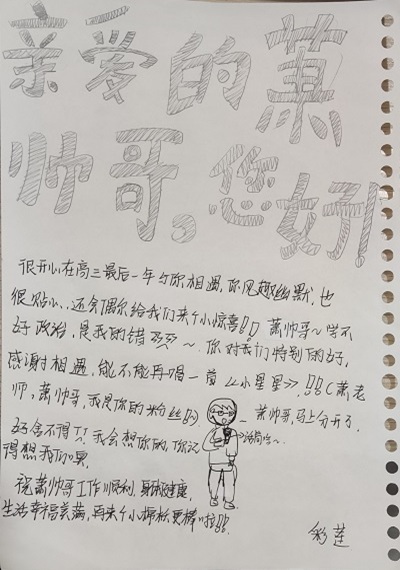 亲爱的萧
帅哥,您好!
很开心在高三最后一年与你相遇,你风趣幽默,也
很贴心,还会偶尔给我们来个小惊喜!! 萧帅哥~学不
好政治,是我的错 ~ 你对我们特别的好,
感谢相遇,能不能再唱一首《小星星》!!!(萧老
师,萧帅哥,我是你的粉丝!!) 萧帅哥,马上分开了,
话筒哈~
好舍不得!! 我会想你的,你记
得想我们哦
祝萧帅哥工作顺利,身体健康,
生活幸福美满,再来个小 更棒啦!!!
彩莲